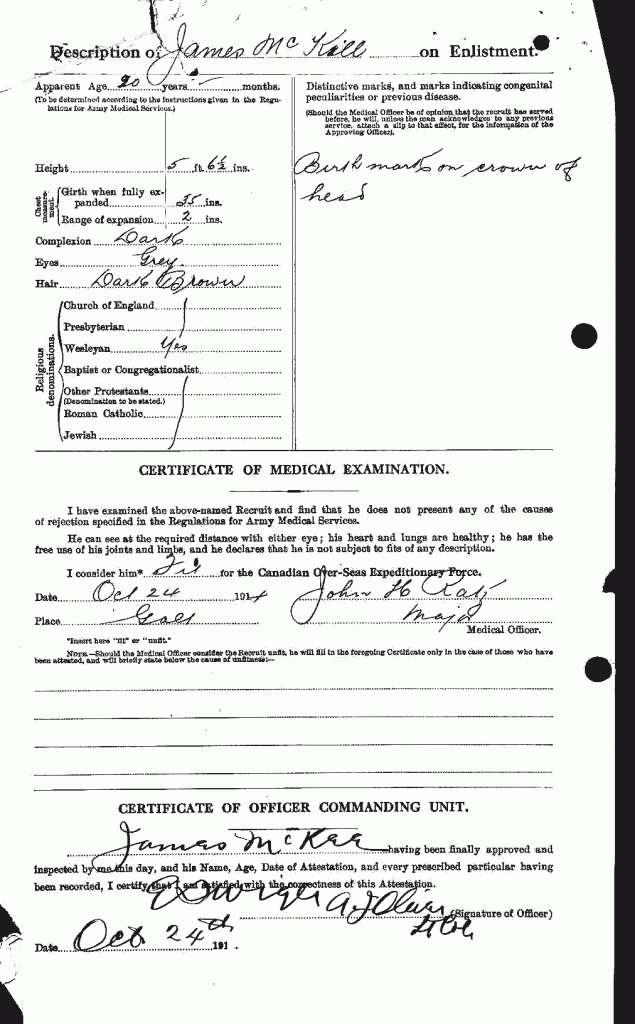 Description of James McKill on Enlistment.
Apparent Age 20 years months.
(To be determined according to the instructions given in the Regu-
lations for Army Medical Services.)
Height 5 ft. 6½ ins.
Chest measure-ment.
Girth when fully ex-
panded 35 ins.
Range of expansion 2 ins.
Complexion Dark
Eyes Grey
Hair Dark Brown
Religious denominations.
Church of England
Presbyterian
Wesleyan Yes
Baptist or Congregationalist
Other Protestants
(Denomination to be stated.)
Roman Catholic
Jewish
Distinctive marks, and marks indicating congenital
peculiarities or previous disease.
(Should the Medical Officer be of opinion that the recruit has served
before, he will, unless the man acknowledges to any previous
service, attach a slip to that effect, for the information of the
Approving Officer).
Birth mark on crown of
head
CERTIFICATE OF MEDICAL EXAMINATION.
I have examined the above-named Recruit and find that he does not present any of the causes
of rejection specified in the Regulations for Army Medical Services.
He can see at the required distance with either eye; his heart and lungs are healthy; he has the
free use of his joints and limbs, and he declares that he is not subject to fits of any description.
I consider him* Fit for the Canadian Over-Seas Expeditionary Force.
Date Oct 24 1914
John H
Place Galt
Major
Medical Officer.
*Insert here "fit" or "unfit."
NOTE.—Should the Medical Officer consider the Recruit unfit, he will fill in the foregoing Certificate only in the case of those who have
been attested, and will briefly state below the cause of unfitness:—
CERTIFICATE OF OFFICER COMMANDING UNIT.
James McKee having been finally approved and
inspected by me this day, and his Name, Age, Date of Attestation, and every prescribed particular having
been recorded, I certify that I am satisfied with the correctness of this Attestation.
A J Oliver (Signature of Officer)
Lt Col
Date Oct 24th 191